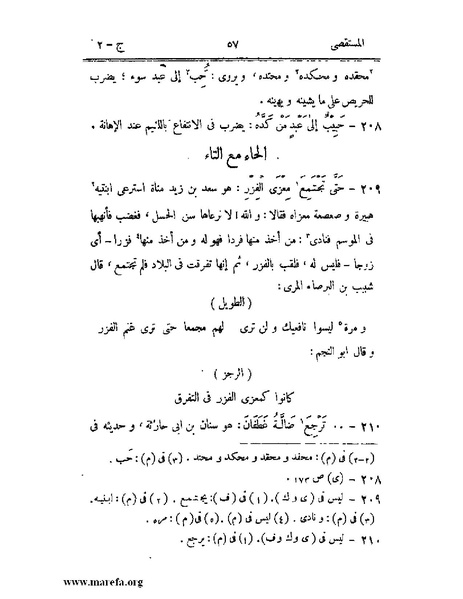 المستقصى ٥٧ ج - ٢
٢محقده و محكده٢ و محتده، و يروى: حُبب٣ إلى عبد سوء؛ يضرب
للحريص على ما يشينه و يهينه .
٢٠٨ - حَبِيْبٌ إِلىٰ عَبْدٍ مَنْ كَدَّهُ: يضرب فى الانتفاع باللئيم عند الإهانة .
الحاء مع التاء
٢٠٩ - حَتَّى تَجْتَمِعَ١ مِعْزَى الْفِزْرِ: هو سعد بن زيد مناة استرعى ابنيه٢
هبيرة و صعصعة معزاه فقالا: و الله ! لا نرعاها سن الحسل، فغضب فأنهبها
فى الموسم فنادى٣: من أخذ منها فردا فهو له و من أخذ منها٤ فزرا - أى
زوجا - فليس له، فلقب بالفزر، ثم إنها تفرقت فى البلاد فلم تجتمع، قال
شبيب بن البرصاء المرى:
( الطويل )
و مرة٥ ليسوا نافعيك و لن ترى لهم مجمعا حتى ترى غنم الفزر
و قال ابو النجم:
( الرجز )
كانوا كمعزى الفزر فى التفرق
٢١٠ - ٠٠ تَرْجِعَ١ ضَالَّةُ غَطَفَانَ: هو سنان بن ابى حارثة، و حديثه فى
(٢-٢) فى (م): محفد و محقد و محكد و محتد . (٣) فى (م): حَب .
٢٠٨ - (ى) ص ١٧٣ .
٢٠٩ - ليس فى (ى و ك). (١) فى (ف): يجتمع . (٢) فى (م): ابنيه.
(٣) فى (م): و نادى . (٤) ليس فى (م) .(٥) فى (م): مره .
٢١٠ - ليس فى (ى و ك و ف). (١) فى (م): يرجع .
www.marefa.org